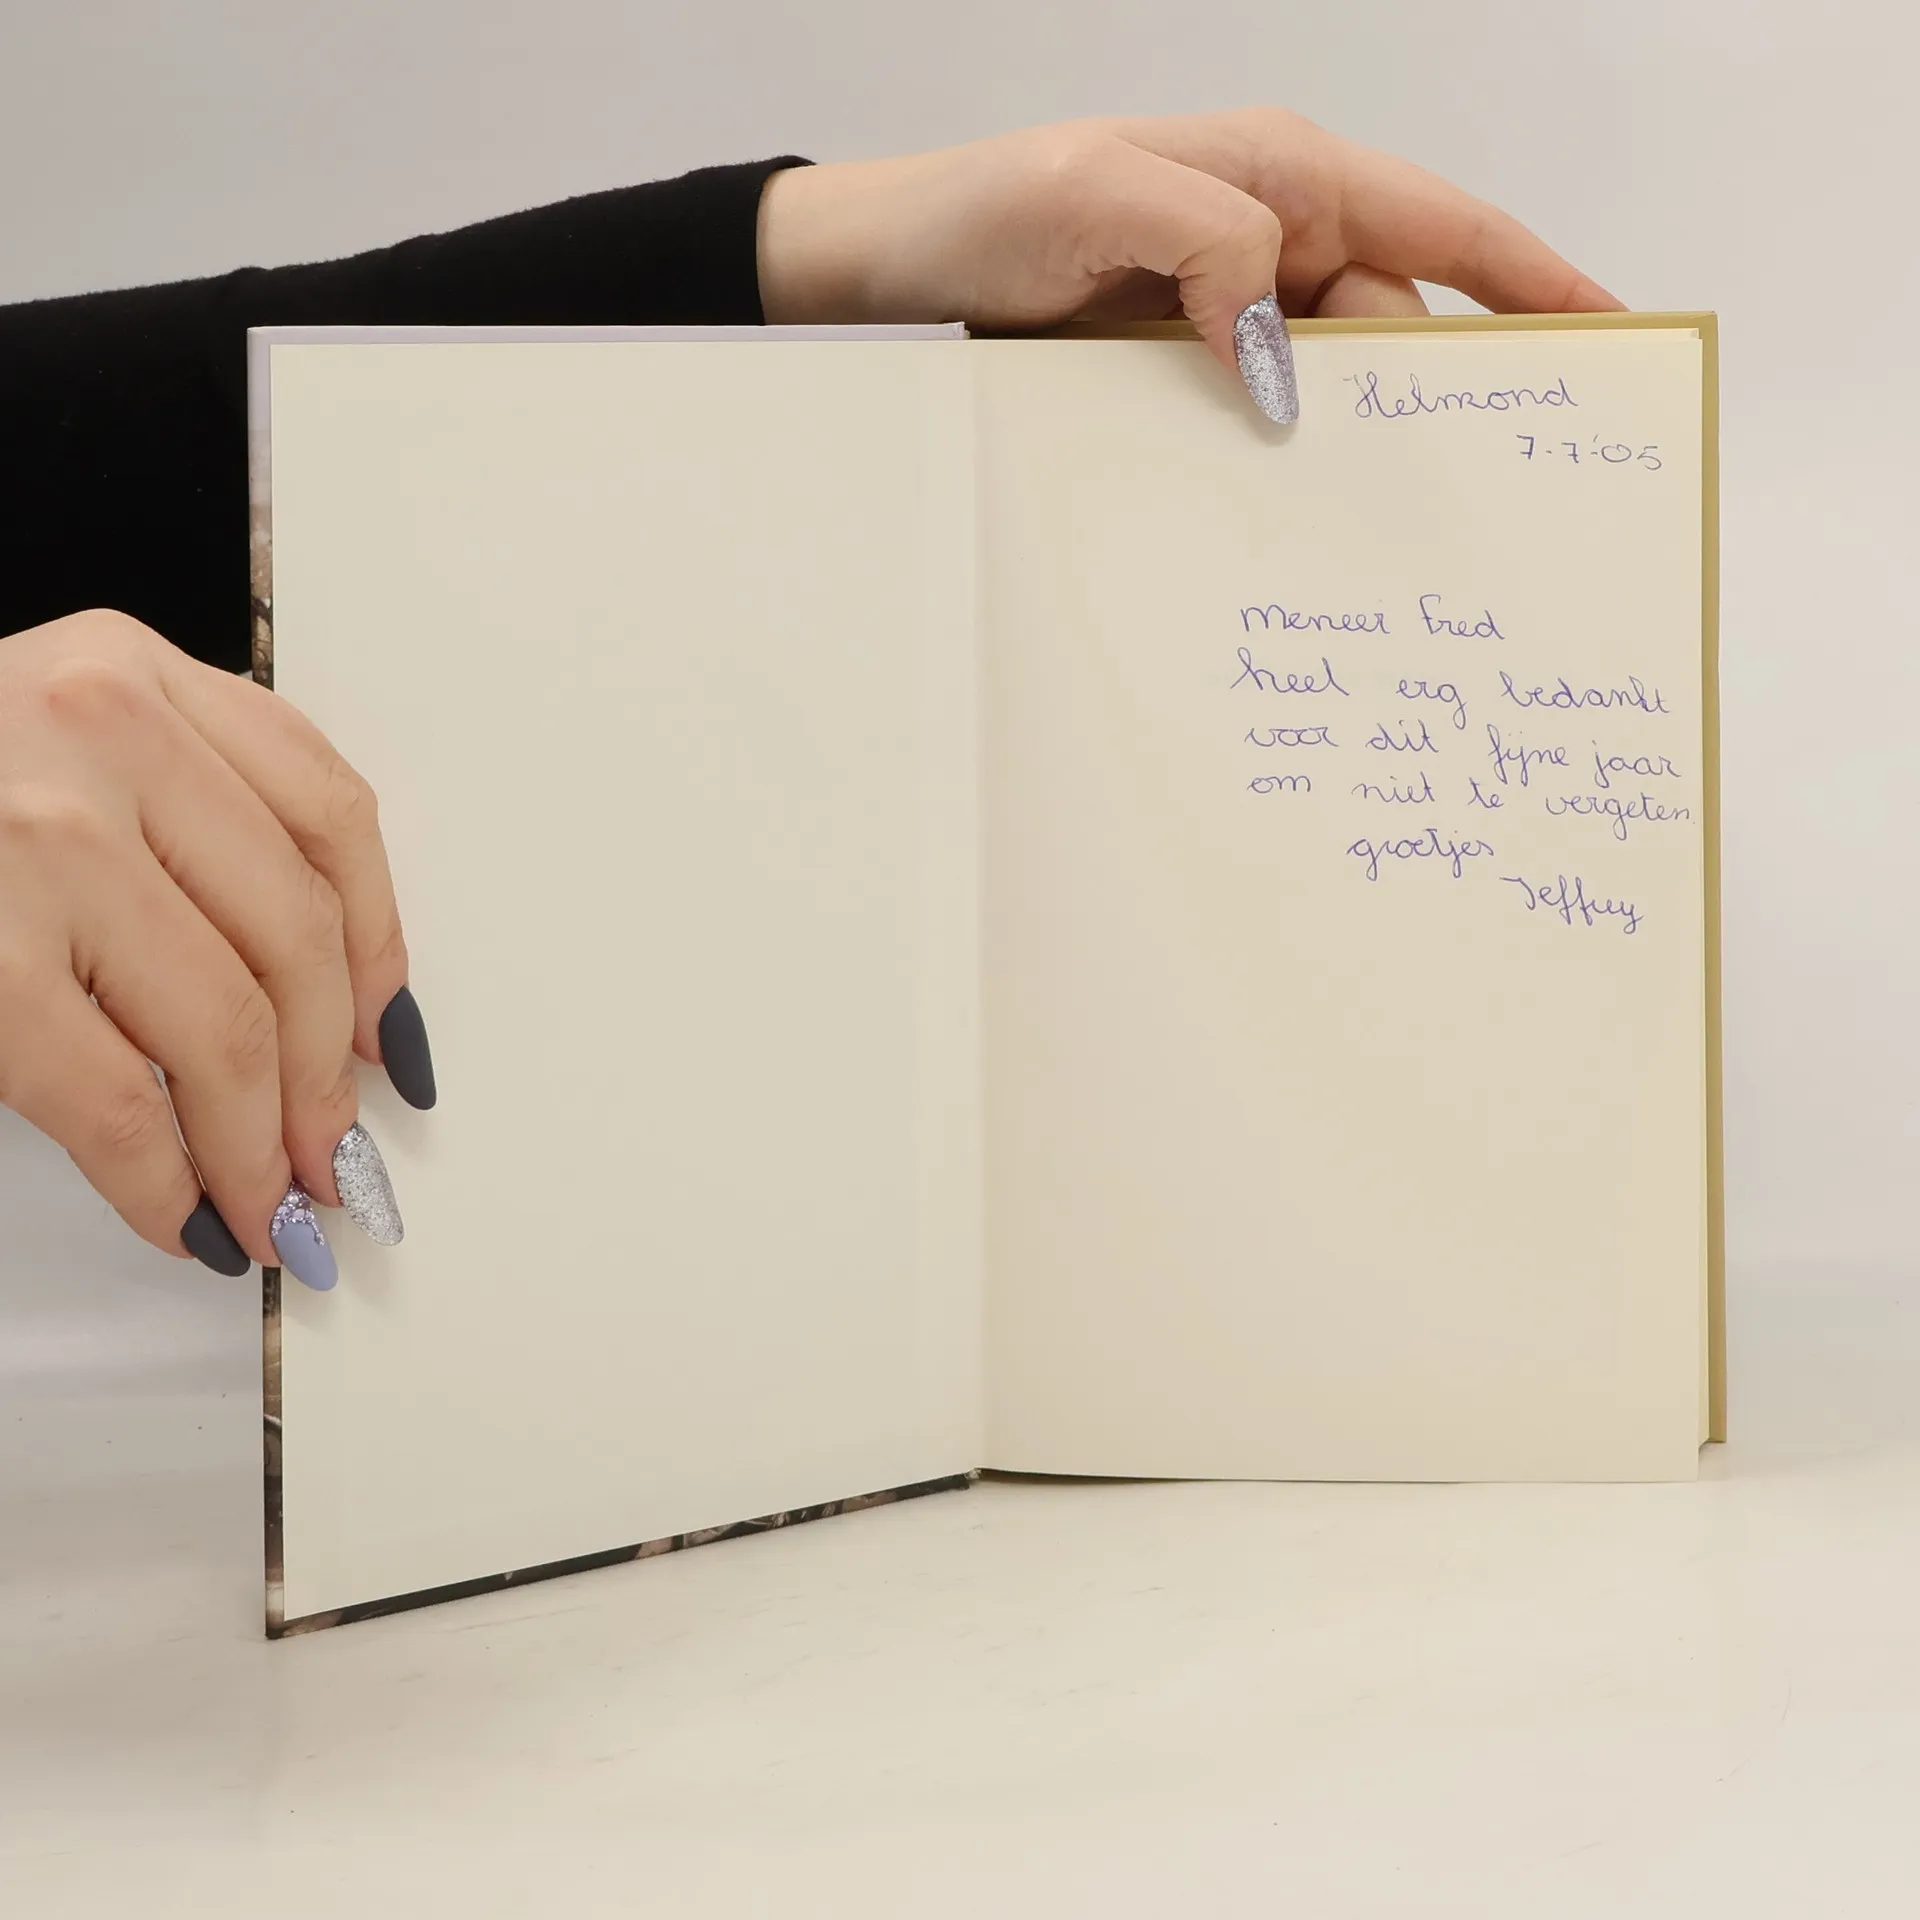 Helmond
7-7-'05
Meneer Fred
heel erg bedankt
voor dit fijne jaar
om niet te vergeten.
groetjes
Jeffrey